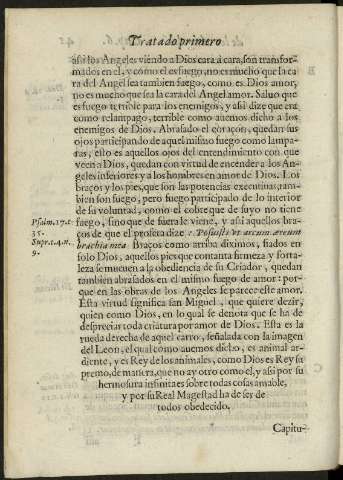 Tratado primero
assi los Angeles viendo a Dios cara à cara, son transfor-
mados en el, y como el es fuego, no es mucho que la ca
ra del Angel sea tambien fuego, como es Dios amor,
no es mucho que sea la cara del Angel amor. Saluo que
es fuego terrible para los enemigos, y assi dize que era
como relampago, terrible como auemos dicho a los
enemigos de Dios. Abrasado el coraçon, quedan sus
ojos participando de aquel mismo fuego como lampa-
ras, esto es aquellos ojos del entendimiento con que
veen a Dios, quedan con virtud de encender a los An-
geles inferiores y a los hombres en amor de Dios. Los
braços y los pies, que son las potencias executiuas, tam-
bien son fuego, pero fuego participado de lo interior
de su voluntad, como el cobre que de suyo no tiene
fuego, sino que de fuera le viene, y assi aquellos bra-
Psalm. 17. c
35.
Supr. 1. 4. n.
9.
ços de que el profeta dize: Posuisti vt arcum æreum
brachia mea. Braços como arriba diximos, fiados en
solo Dios, aquellos pies que con tanta firmeza y forta-
leza se mueuen a la obediencia de su Criador, quedan
tambien abrasados en el mismo fuego de amor: por-
que en las obras de los Angeles se parece este amor.
Esta virtud significa san Miguel, que quiere dezir,
quien como Dios, en lo qual se denota que se ha de
despreciar toda criatura por amor de Dios. Esta es la
rueda derecha de aquel carro, señalada con la imagen
del Leon, el qual como auemos dicho, es animal ar-
diente, y es Rey de los animales, como Dios es Rey su
premo, de manera, que no ay otro como el, y assi por su
hermosura infinita es sobre todas cosas amable,
y por su Real Magestad ha de ser de
todos obedecido.
Capitu-